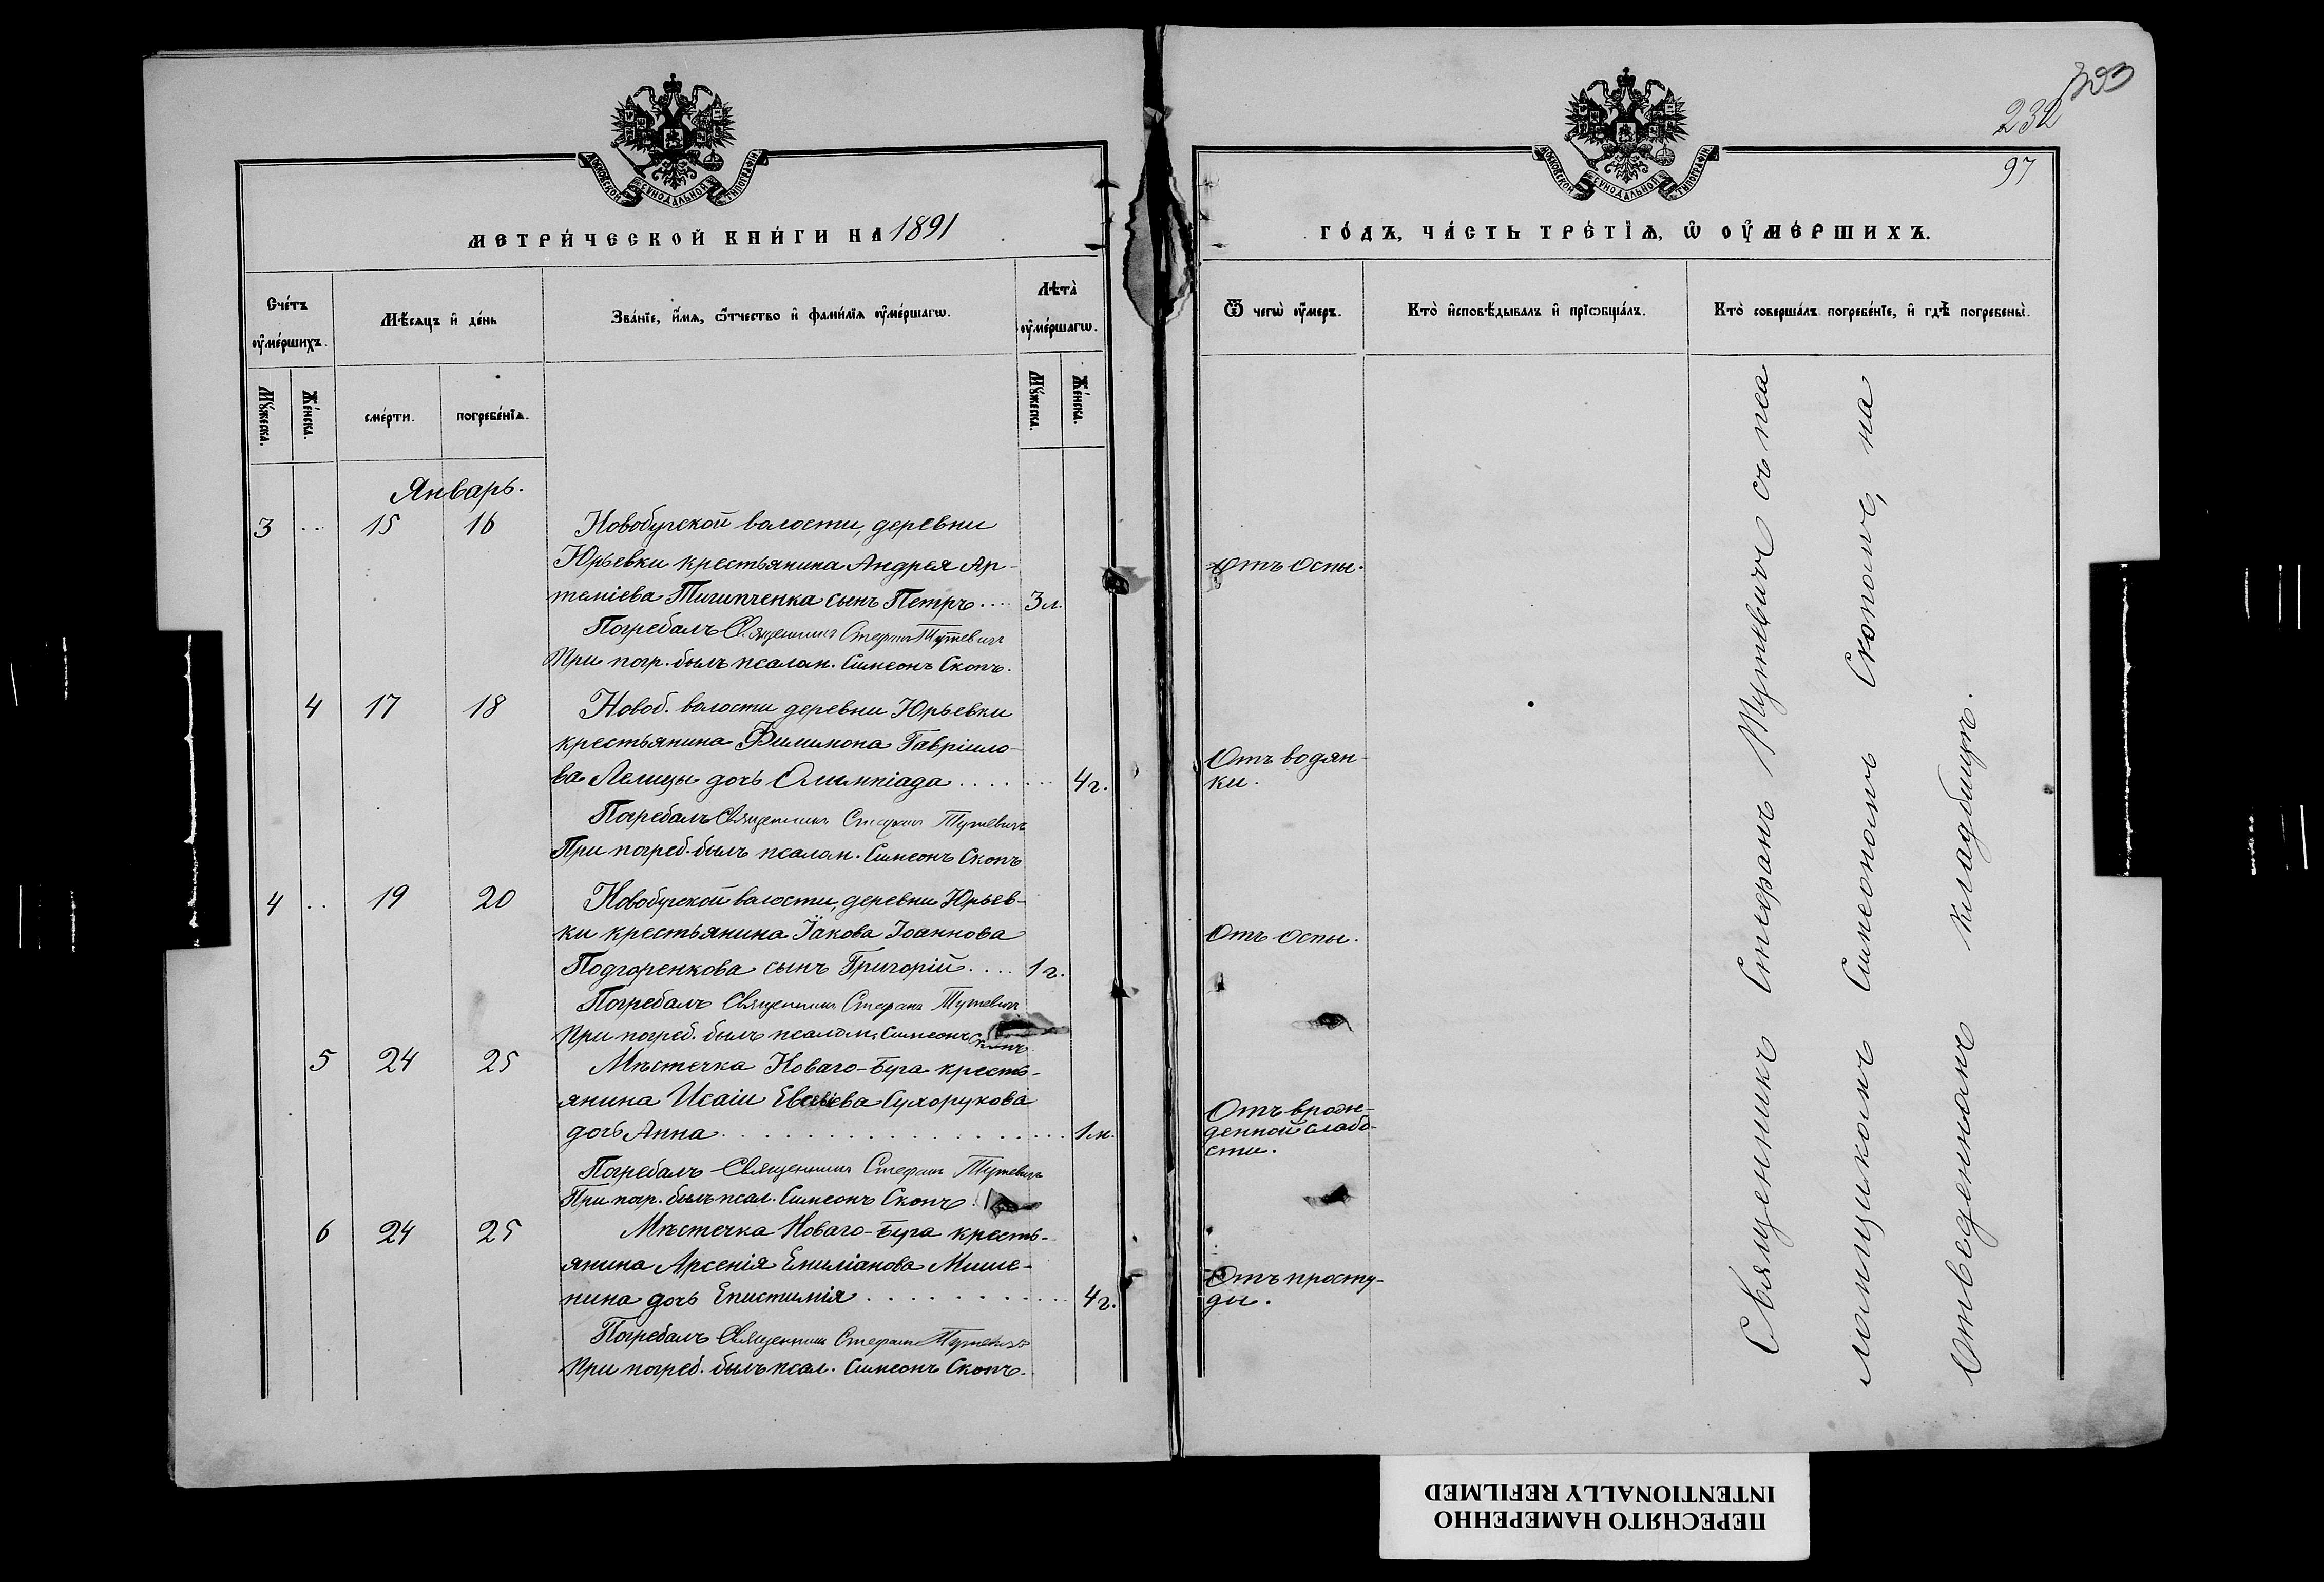 МОСКОВСКОЙ СУНОДАЛЬНОЙ ТИПОГРАФІИ
МЕТРИ́ЧЕСКОЙ КНИ́ГИ НА 1891
Счéтъ ᲂу҆мéршихъ.
Мѣ́сяцъ и҆ дéнь
Звáнїе, и҆́мѧ, ѻ҆́тчество и҆ фами́лїѧ ᲂу҆мéршагѡ.
Лѣ́та ᲂу҆мéршагѡ.
Мꙋ́жеска.
Жéнска.
смéрти.
погребéнїѧ.
Мꙋ́жеска.
Жéнска.
Январь.
3 .. 15 16 Новобугской волости, деревни
Юрьевки крестьянина Андрея Ар-
теміева Тигипченка сынъ Петръ .... 3 л.
Погребалъ Священникъ Стефанъ Тутевичъ
При погр. былъ псалом. Симеонъ Скопъ.
4 17 18 Новоб. волости деревни Юрьевки
крестьянина Филимона Гавріило-
ва Лелицы дочь Олимпіада ....... 4 г.
Погребалъ Священникъ Стефанъ Тутевичъ
При погреб. былъ псалом. Симеонъ Скопъ
4 .. 19 20 Новобугской волости, деревни Юрьев-
ки крестьянина Іакова Іоаннова
Подгоренкова сынъ Григорій .... 1 г.
Погребалъ Священникъ Стефанъ Тутевичъ
При погреб. былъ псалом. Симеонъ Скопъ
5 24 25 Мѣстечка Новаго-Буга кресть-
янина Исаіи Евсѣева Сухорукова
дочь Анна .................. 1 м.
Погребалъ Священникъ Стефанъ Тутевичъ
При погр. былъ псал. Симеонъ Скопъ.
6 24 25 Мѣстечка Новаго-Буга кресть-
янина Арсенія Емиліанова Мише-
нина дочь Епистимія ........... 4 г.
Погребалъ Священникъ Стефанъ Тутевичъ
При погреб. былъ псал. Симеонъ Скопъ.
393
232
97
МОСКОВСКОЙ СУНОДАЛЬНОЙ ТИПОГРАФІИ
ГО́ДЪ, ЧА́СТЬ ТРЕ́ТЇѦ, Ѡ҆ ОУ҆МЕ́РШИХЪ.
Ѿ чегѡ̀ ᲂу҆́меръ.
Ктò и҆сповѣ́дывалъ и҆ прїѡбщáлъ.
Ктò совершáлъ погребéнїе, и҆ гдѣ̀ погребены̀.
Отъ оспы.
Отъ водян-
ки.
Отъ оспы.
Отъ врож-
денной слабо-
сти.
Отъ просту-
ды.
Священникъ Стефанъ Тутевичъ съ пса
ломщикомъ Симеономъ Скопомъ, на
Отведенномъ кладбищѣ.
ПЕРЕСНЯТО НАМЕРЕННО
INTENTIONALLY REFILMED